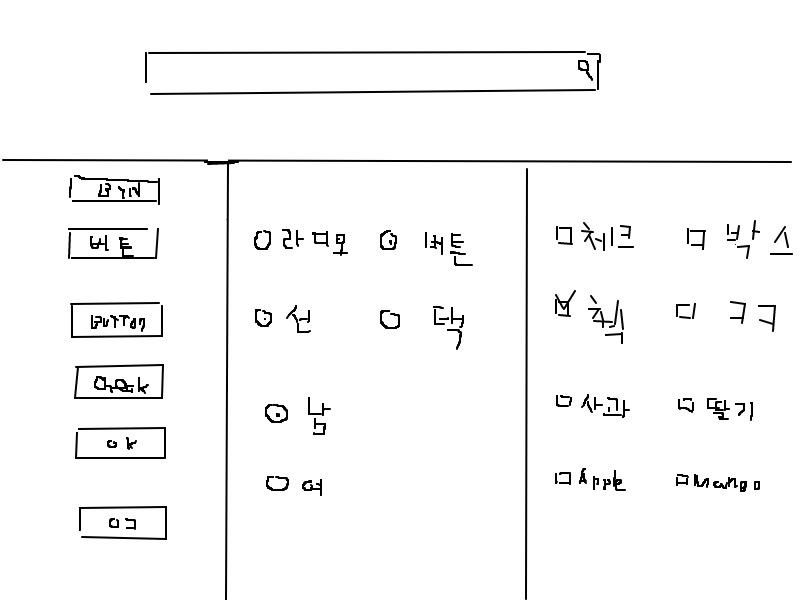 BTN
버튼
BUTTON
Check
OK
ㅇㅋ
라디오 버튼
선 택
남
여
체크 박스
치킨 ㅋㅋ
사과 딸기
Apple Mango